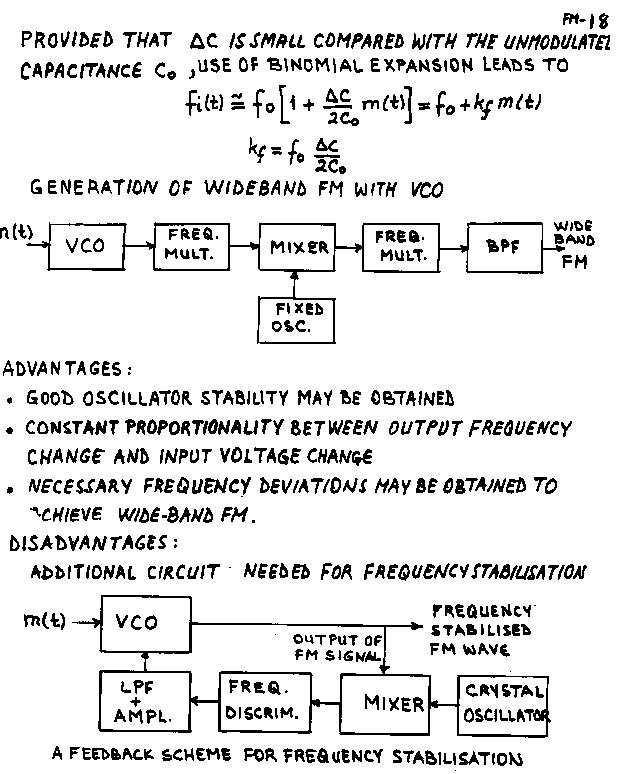 FM-18
PROVIDED THAT ΔC IS SMALL COMPARED WITH THE UNMODULATED
CAPACITANCE C₀, USE OF BINOMIAL EXPANSION LEADS TO
fi(t) ≅ f₀[1 + ΔC/2C₀ m(t)] = f₀ + kf m(t)
kf = f₀ ΔC/2C₀
GENERATION OF WIDEBAND FM WITH VCO
m(t)
VCO
FREQ.
MULT.
MIXER
FREQ.
MULT.
BPF
WIDE
BAND
FM
FIXED
OSC.
ADVANTAGES:
• GOOD OSCILLATOR STABILITY MAY BE OBTAINED
• CONSTANT PROPORTIONALITY BETWEEN OUTPUT FREQUENCY
CHANGE AND INPUT VOLTAGE CHANGE
• NECESSARY FREQUENCY DEVIATIONS MAY BE OBTAINED TO
ACHIEVE WIDE-BAND FM.
DISADVANTAGES:
ADDITIONAL CIRCUIT NEEDED FOR FREQUENCY STABILISATION
m(t)
VCO
FREQUENCY
STABILISED
FM WAVE
OUTPUT OF
FM SIGNAL
LPF
+
AMPL.
FREQ.
DISCRIM.
MIXER
CRYSTAL
OSCILLATOR
A FEEDBACK SCHEME FOR FREQUENCY STABILISATION